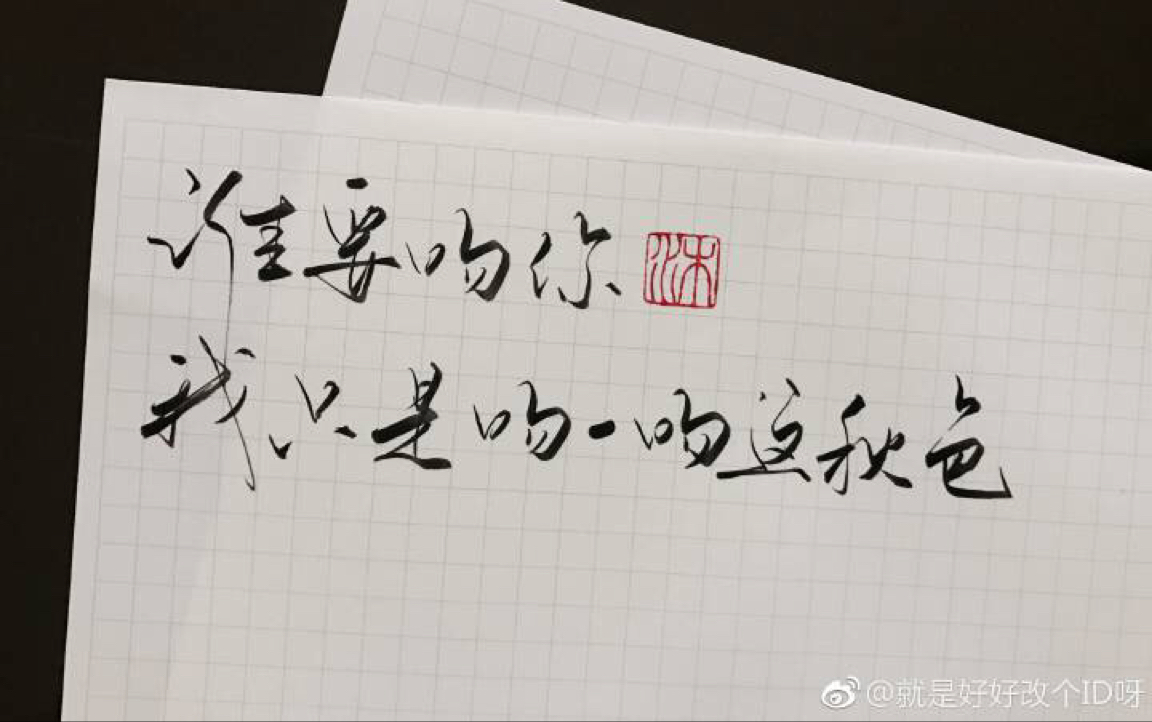 谁要吻你
沐
我只是吻一吻这秋色
@就是好好改个ID呀